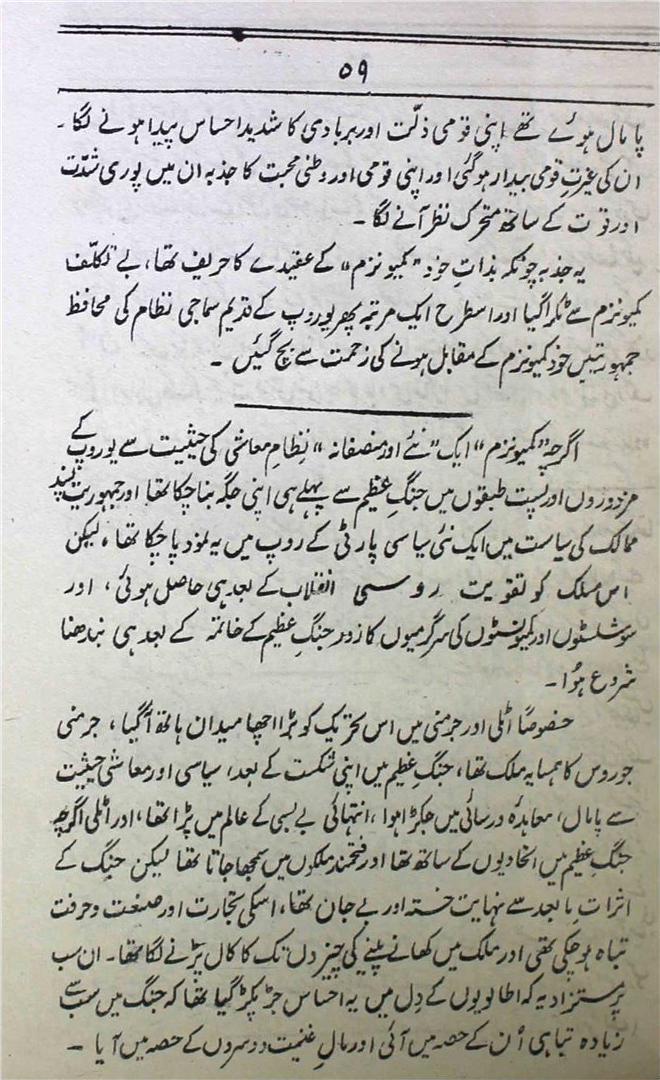 ۵۹
پامال ہوئے تھے اپنی قومی ذلّت اور بربادی کا شدید احساس پیدا ہونے لگا۔
ان کی غیرتِ قومی بیدار ہوگئی اور اپنی قومی اور وطنی محبت کا جذبہ ان میں پوری شدّت
اور قوت کے ساتھ متحرک نظر آنے لگا۔
یہ جذبہ چونکہ بذاتِ خود "کمیونزم" کے عقیدے کا حریف تھا، بے تکلّف
کمیونزم سے ٹکرا گیا اور اسطرح ایک مرتبہ پھر یوروپ کے قدیم سماجی نظام کی محافظ
جمہوریتیں خود کمیونزم کے مقابل ہونے کی زحمت سے بچ گئیں۔
اگرچہ "کمیونزم" ایک "نئے اور منصفانہ" نظامِ معاشی کی حیثیت سے یوروپ کے
مزدوروں اور پست طبقوں میں جنگِ عظیم سے پہلے ہی اپنی جگہ بنا چکا تھا اور جمہوریت پسند
ممالک کی سیاست میں ایک نئی سیاسی پارٹی کے روپ میں یہ نمود پا چکا تھا، لیکن
اس مسلک کو تقویت روسی انقلاب کے بعد ہی حاصل ہوئی، اور
سوشلسٹوں اور کمیونسٹوں کی سرگرمیوں کا زور جنگِ عظیم کے خاتمہ کے بعد ہی بندھنا
شروع ہُوا۔
خصوصاً اٹلی اور جرمنی میں اس تحریک کو بڑا اچھا میدان ہاتھ آگیا، جرمنی
جو روس کا ہمسایہ ملک تھا، جنگِ عظیم میں اپنی شکست کے بعد، سیاسی اور معاشی حیثیت
سے پامال، معاہدہ ورسائی میں جکڑا ہوا، انتہائی بے بسی کے عالم میں پڑا تھا، اور اٹلی اگرچہ
جنگِ عظیم میں اتحادیوں کے ساتھ تھا اور فتحمند ملکوں میں سمجھا جاتا تھا لیکن جنگ کے
اثرات مابعد سے نہایت خستہ اور بے جان تھا، اسکی تجارت اور صنعت و حرفت
تباہ ہوچکی تھی اور ملک میں کھانے پینے کی چیزوں تک کا کال پڑنے لگا تھا۔ ان سب
پر مستزاد یہ کہ اطالویوں کے دِل میں یہ احساس جڑ پکڑ گیا تھا کہ جنگ میں سب سے
زیادہ تباہی اُن کے حصہ میں آئی اور مالِ غنیمت دوسروں کے حصہ میں آیا۔